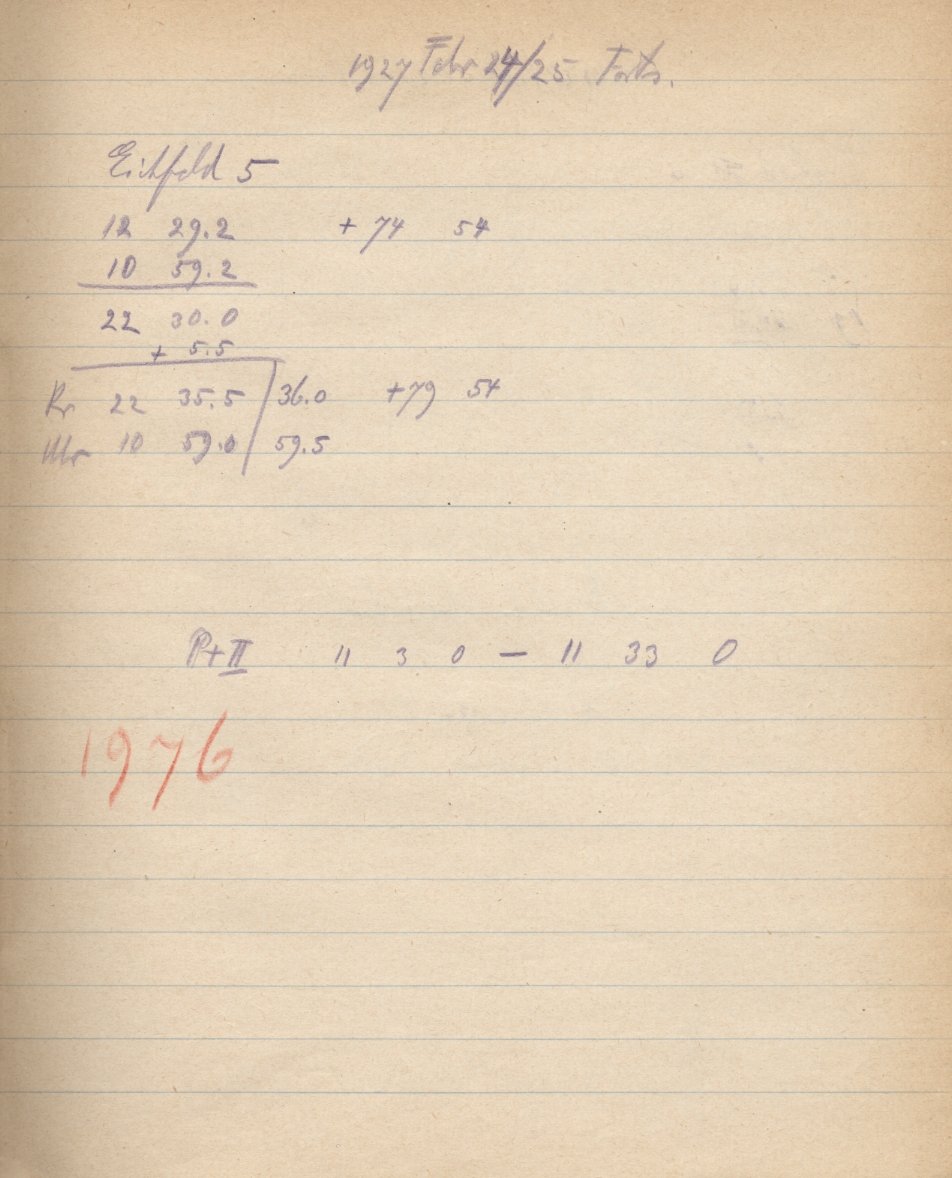 1927 Febr 24/25 Forts.
Eichfeld 5
12 29.2 + 74 54
10 59.2
22 30.0
+ 5.5
Kr 22 35.5 36.0 +79 54
Uhr 10 59.0 59.5
P+II 11 3 0 — 11 33 0
1976